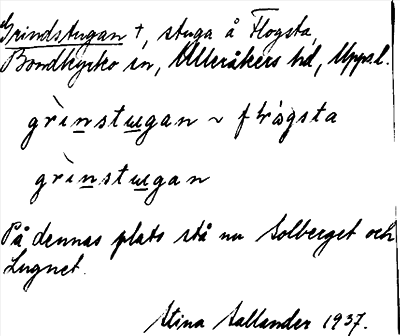 Grindstugan †, stuga å Flogsta,
Bondkyrko sn, Ulleråkers hd, Uppsal.
grìnstɯgan ~ flὼgsta
grìnstɯgan
På dennas plats stå nu Solberget och
Lugnet.
Stina Sallander 1937.